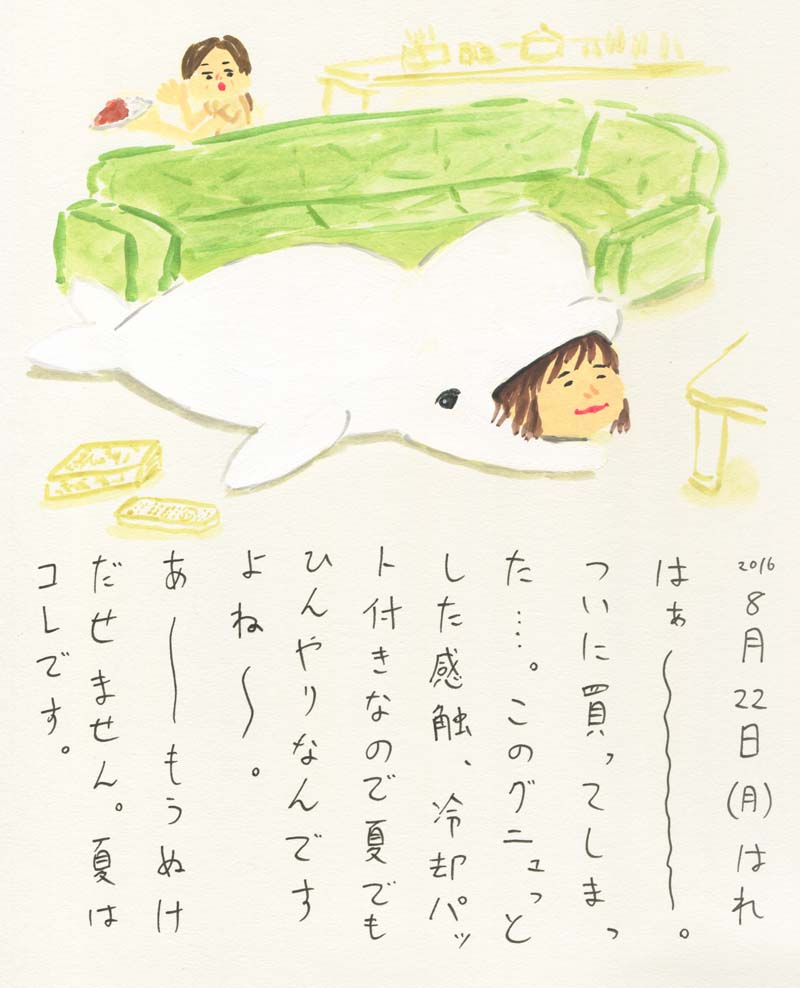 2016 8月22日(月)はれ
はぁ〜〜〜〜〜。
ついに買ってしまっ
た…。このグニュっと
した感触、冷却パッ
ト付きなので夏でも
ひんやりなんです
よね〜。
あ〜〜もうぬけ
だせません。夏は
コレです。